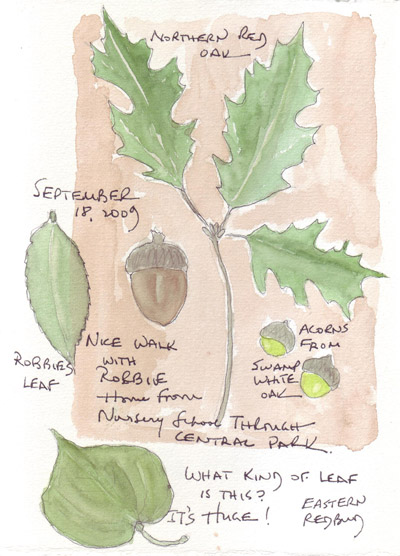 NORTHERN RED
OAK
SEPTEMBER
18, 2009
ACORNS
FROM
SWAMP
WHITE
OAK
ROBBIE'S
LEAF
NICE WALK
WITH
ROBBIE
Home From
Nursery School THROUGH
CENTRAL PARK.
WHAT KIND OF LEAF
IS THIS?
IT'S HUGE!
EASTERN
REDBUD